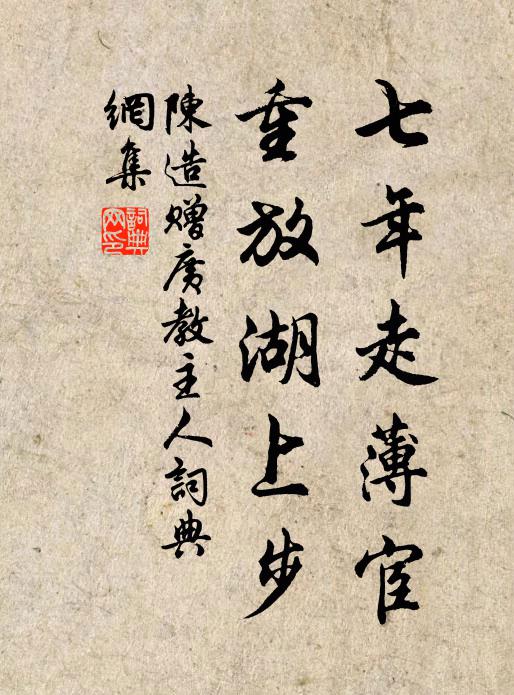 七年走薄宦
重放湖上步
陳造贈廣教主人詞典
網集
詞典網印